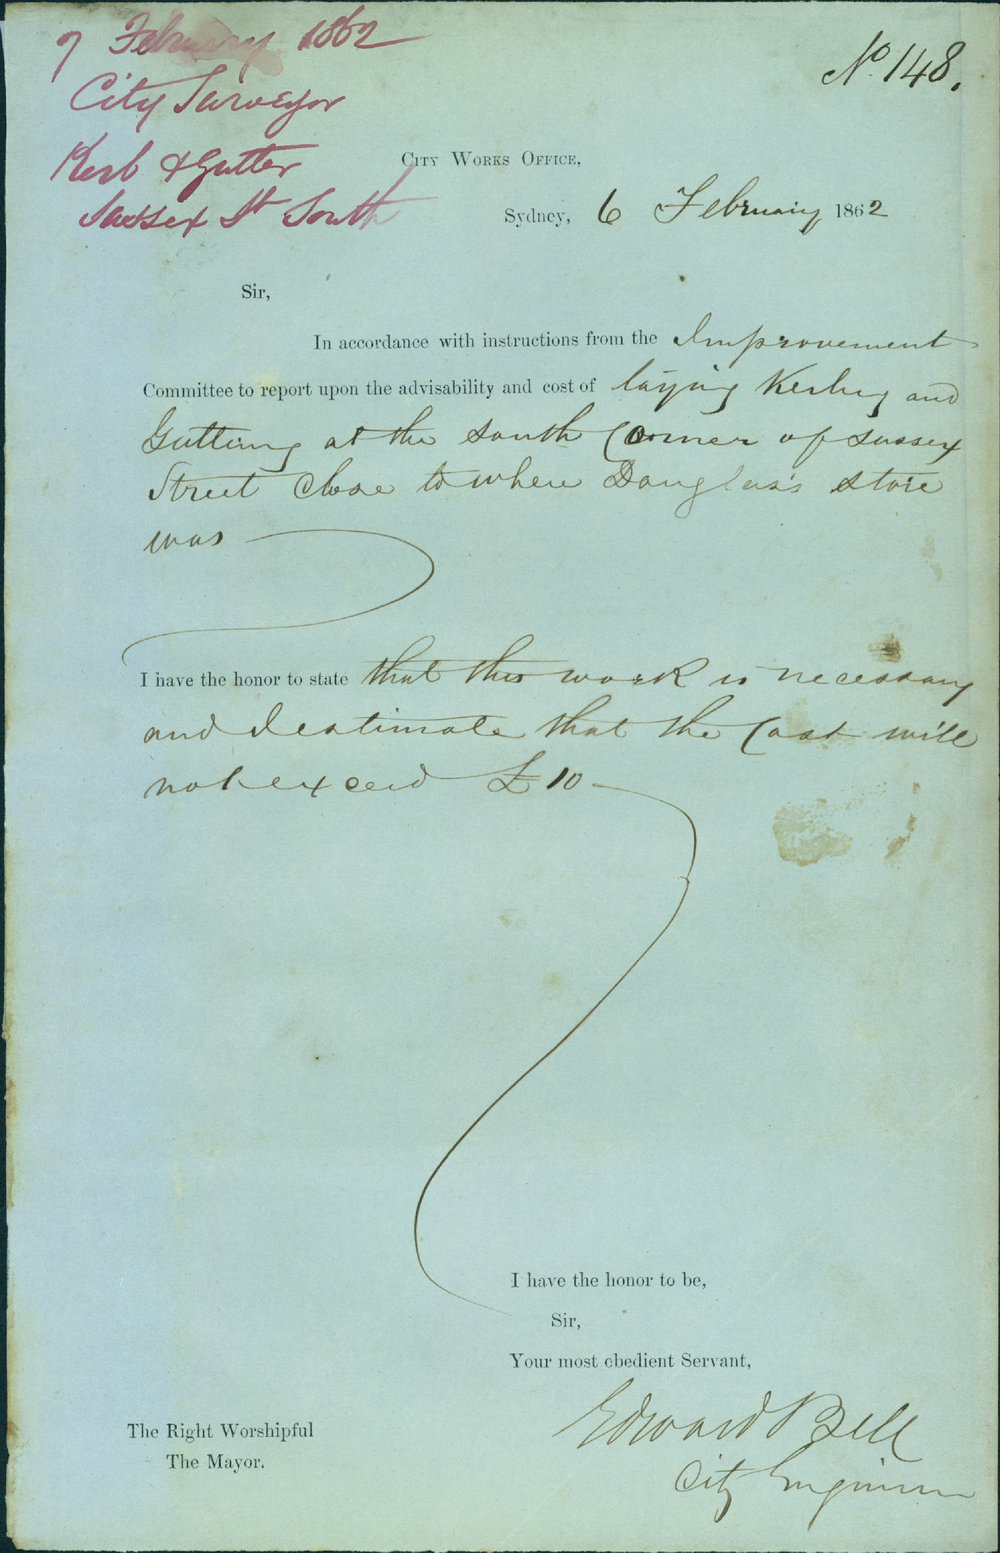 7 February 1862
City Surveyor
Kerb & Gutter
Sussex St South
No. 148.
City Works Office,
Sydney, 6 February 1862
Sir,
In accordance with instructions from the Improvement
Committee to report upon the advisability and cost of laying Kerbing and
Guttering at the south Corner of Sussex
Street Close to where Douglas's store
was
I have the honor to state that this work is necessary
and I estimate that the Cost will
not exceed £10
I have the honor to be,
Sir,
Your most obedient Servant,
Edward Bell
City Engineer
The Right Worshipful
The Mayor.